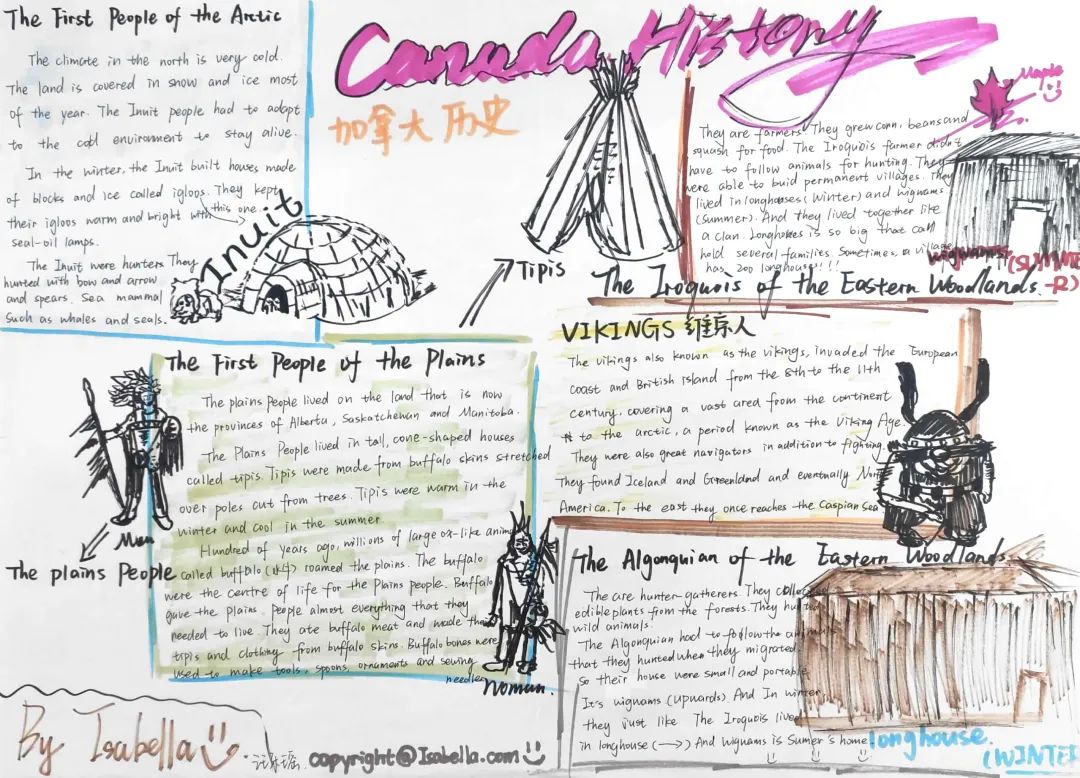 The First People of the Arctic
The climate in the north is very cold.
The land is covered in snow and ice most
of the year. The Inuit people had to adapt
to the cold environment to stay alive.
In the winter, the Inuit built houses made
of blocks and ice called igloos. They kept
this one
their igloos warm and bright with
seal-oil lamps.
The Inuit were hunters They
hunted with bow and arrow
and spears. Sea mammal
Such as whales and seals.
Inuit
Canada History
加拿大历史
Tipis
They are farmers They grew corn, beans and
squash for food. The Iroquois farmer didn't
have to follow animals for hunting. They
were able to buid permanent villages. They
lived in longhouses (Winter) and wigwams
(Summer). And they lived together like
a clan. Longhouses is so big that can
hold several families. Sometimes, a village
has 200 longhouse!!!
Maple
wigwams
The Iroquois of the Eastern Woodlands.
The First People of the Plains
The plains People lived on the land that is now
the provinces of Alberta, Saskatchewan and Manitoba.
The Plains People lived in tall, cone-shaped houses
called tipis. Tipis were made from buffalo skins stretched
over poles cut from trees. Tipis were warm in the
winter and cool in the summer.
Hundred of years ago, millions of large ox-like
called buffalo roamed the plains. The buffalo
were the centre of life for the Plains people. Buffalo
gave the plains people almost everything that they
needed to live. They ate buffalo meat and made their
tipis and clothing from buffalo skins. Buffalo bones were
used to make tools, spoons, ornaments and sewing
needles
Man
The plains People
Woman.
VIKINGS 维京人
The vikings also known as the vikings, invaded the European
coast and British island from the 8th to the 11th
century, covering a vast area from the continent
to the arctic, a period known as the Viking Age.
They were also great navigators in addition to fighting,
They found Iceland and Greenland and eventually
America. To the east they once reaches the Caspian Sea
The Algonquian of the Eastern Woodlands.
The are hunter gatherers. They
edible plants from the forests. They hunted
wild animals.
The Algonquian had to follow the animals
that they hunted when they migrated
so their house were small and portable
It's wigwams (upwards) And In winter,
they just like The Iroquois lived
in longhouse (→) And wigwams is Sumer's home
longhouse.
(WINTER
By Isabella
copyright@Isabella.com